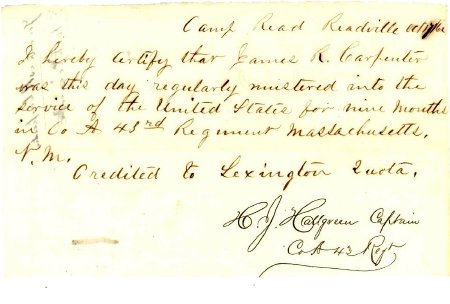 Camp Read Readville Oct 17/62
I hereby certify that James R. Carpenter
was this day regularly mustered into the
service of the United States for nine months
in Co A 43rd Regiment Massachusetts.
V.M.
Credited to Lexington Quota.
H. J. Hallgreen Captain
Co A 43 Regt